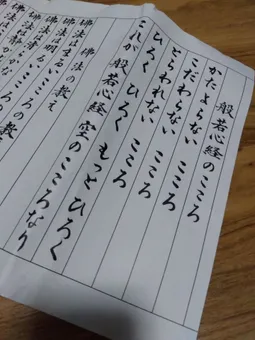 般若心経のこころ
かたよらない こころ
こだわらない こころ
とらわれない こころ
ひろく ひろく もっと ひろく
これが 般若心経 空のこころなり
佛法の教え
佛法はまるいこころの教え
佛法は明るいこころの
佛法は清